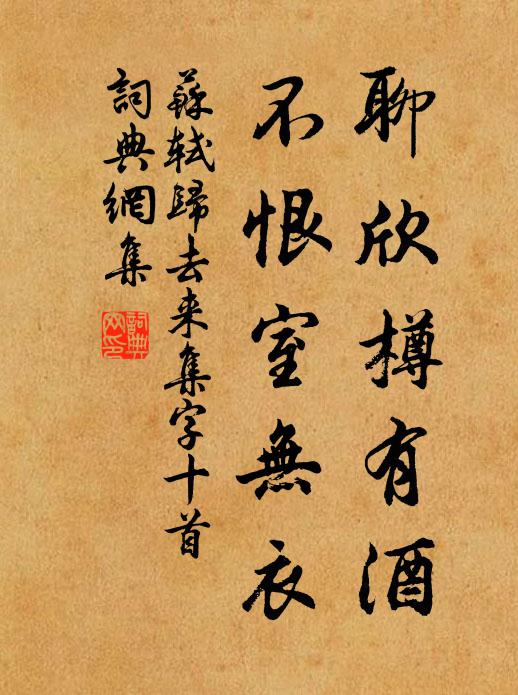 聊欣樽有酒
不恨室無衣
蘇軾歸去来集字十首
詞典網集
詞典网印